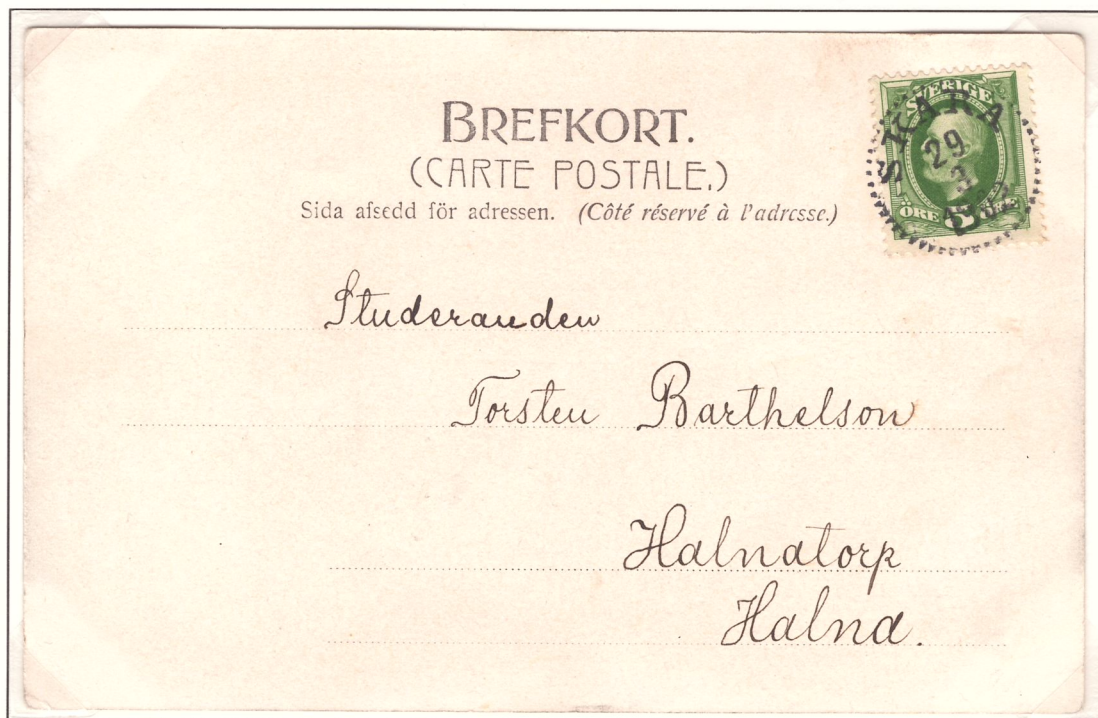 BREFKORT.
(CARTE POSTALE.)
Sida afsedd för adressen. (Côté réservé à l'adresse.)
SVERIGE
ÖRE 5 ÖRE
SKARA
29
3
Studeranden
Torsten Barthelson
Halnatorp
Halna.